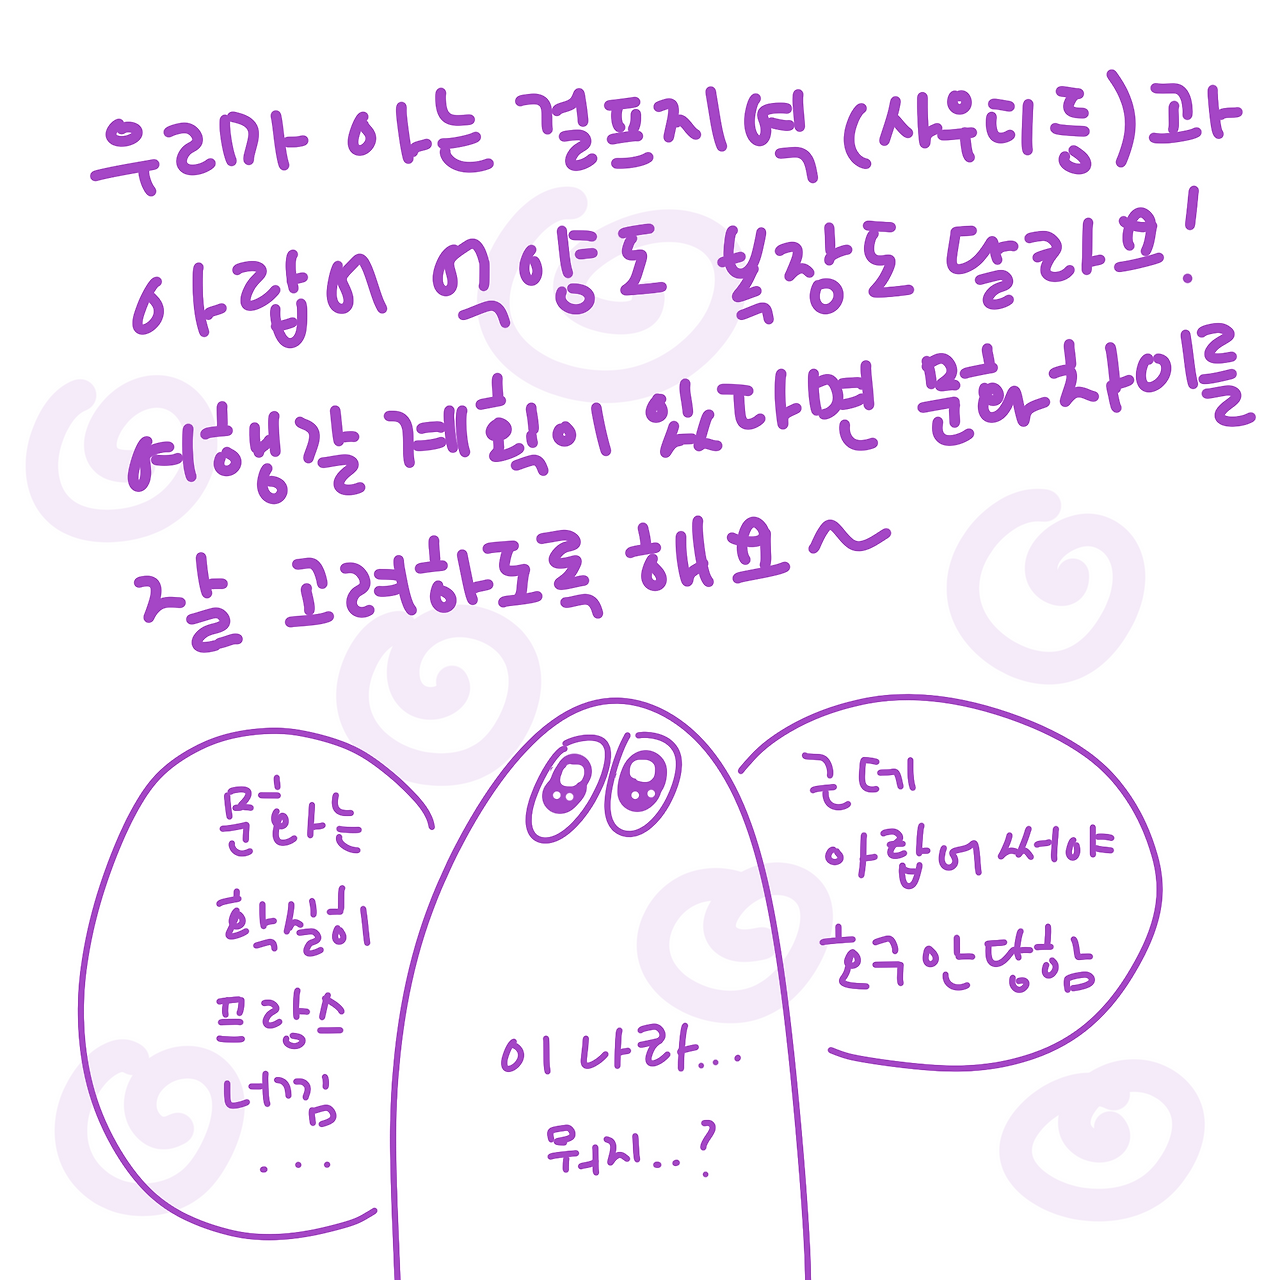 우리가 아는 걸프지역 (사우디 등)과
아랍어 억양도 복장도 달라요!
여행갈 계획이 있다면 문화차이를
잘 고려하도록 해요~
문화는
확실히
프랑스
너낌
...
이 나라...
뭐지..?
근데
아랍어 써야
호구 안 당함